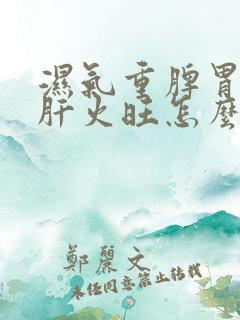 濕氣重脾胃
肝火旺怎麼
鄭麗文
未经同意禁止转载